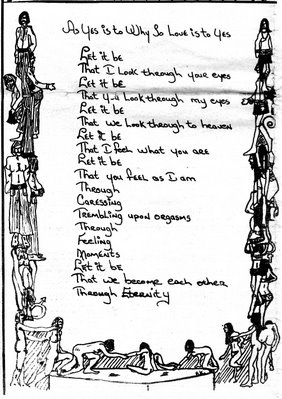 As Yes is to Why So Love is to Yes
Let it be
That I Look through your eyes
Let it be
That you Look through my eyes
Let it be
That we Look through to heaven
Let it be
That I feel what you are
Let it be
That you feel as I am
Through
Caressing
Trembling upon orgasms
Through
Feeling
Moments
Let it be
That we become each other
Through Eternity